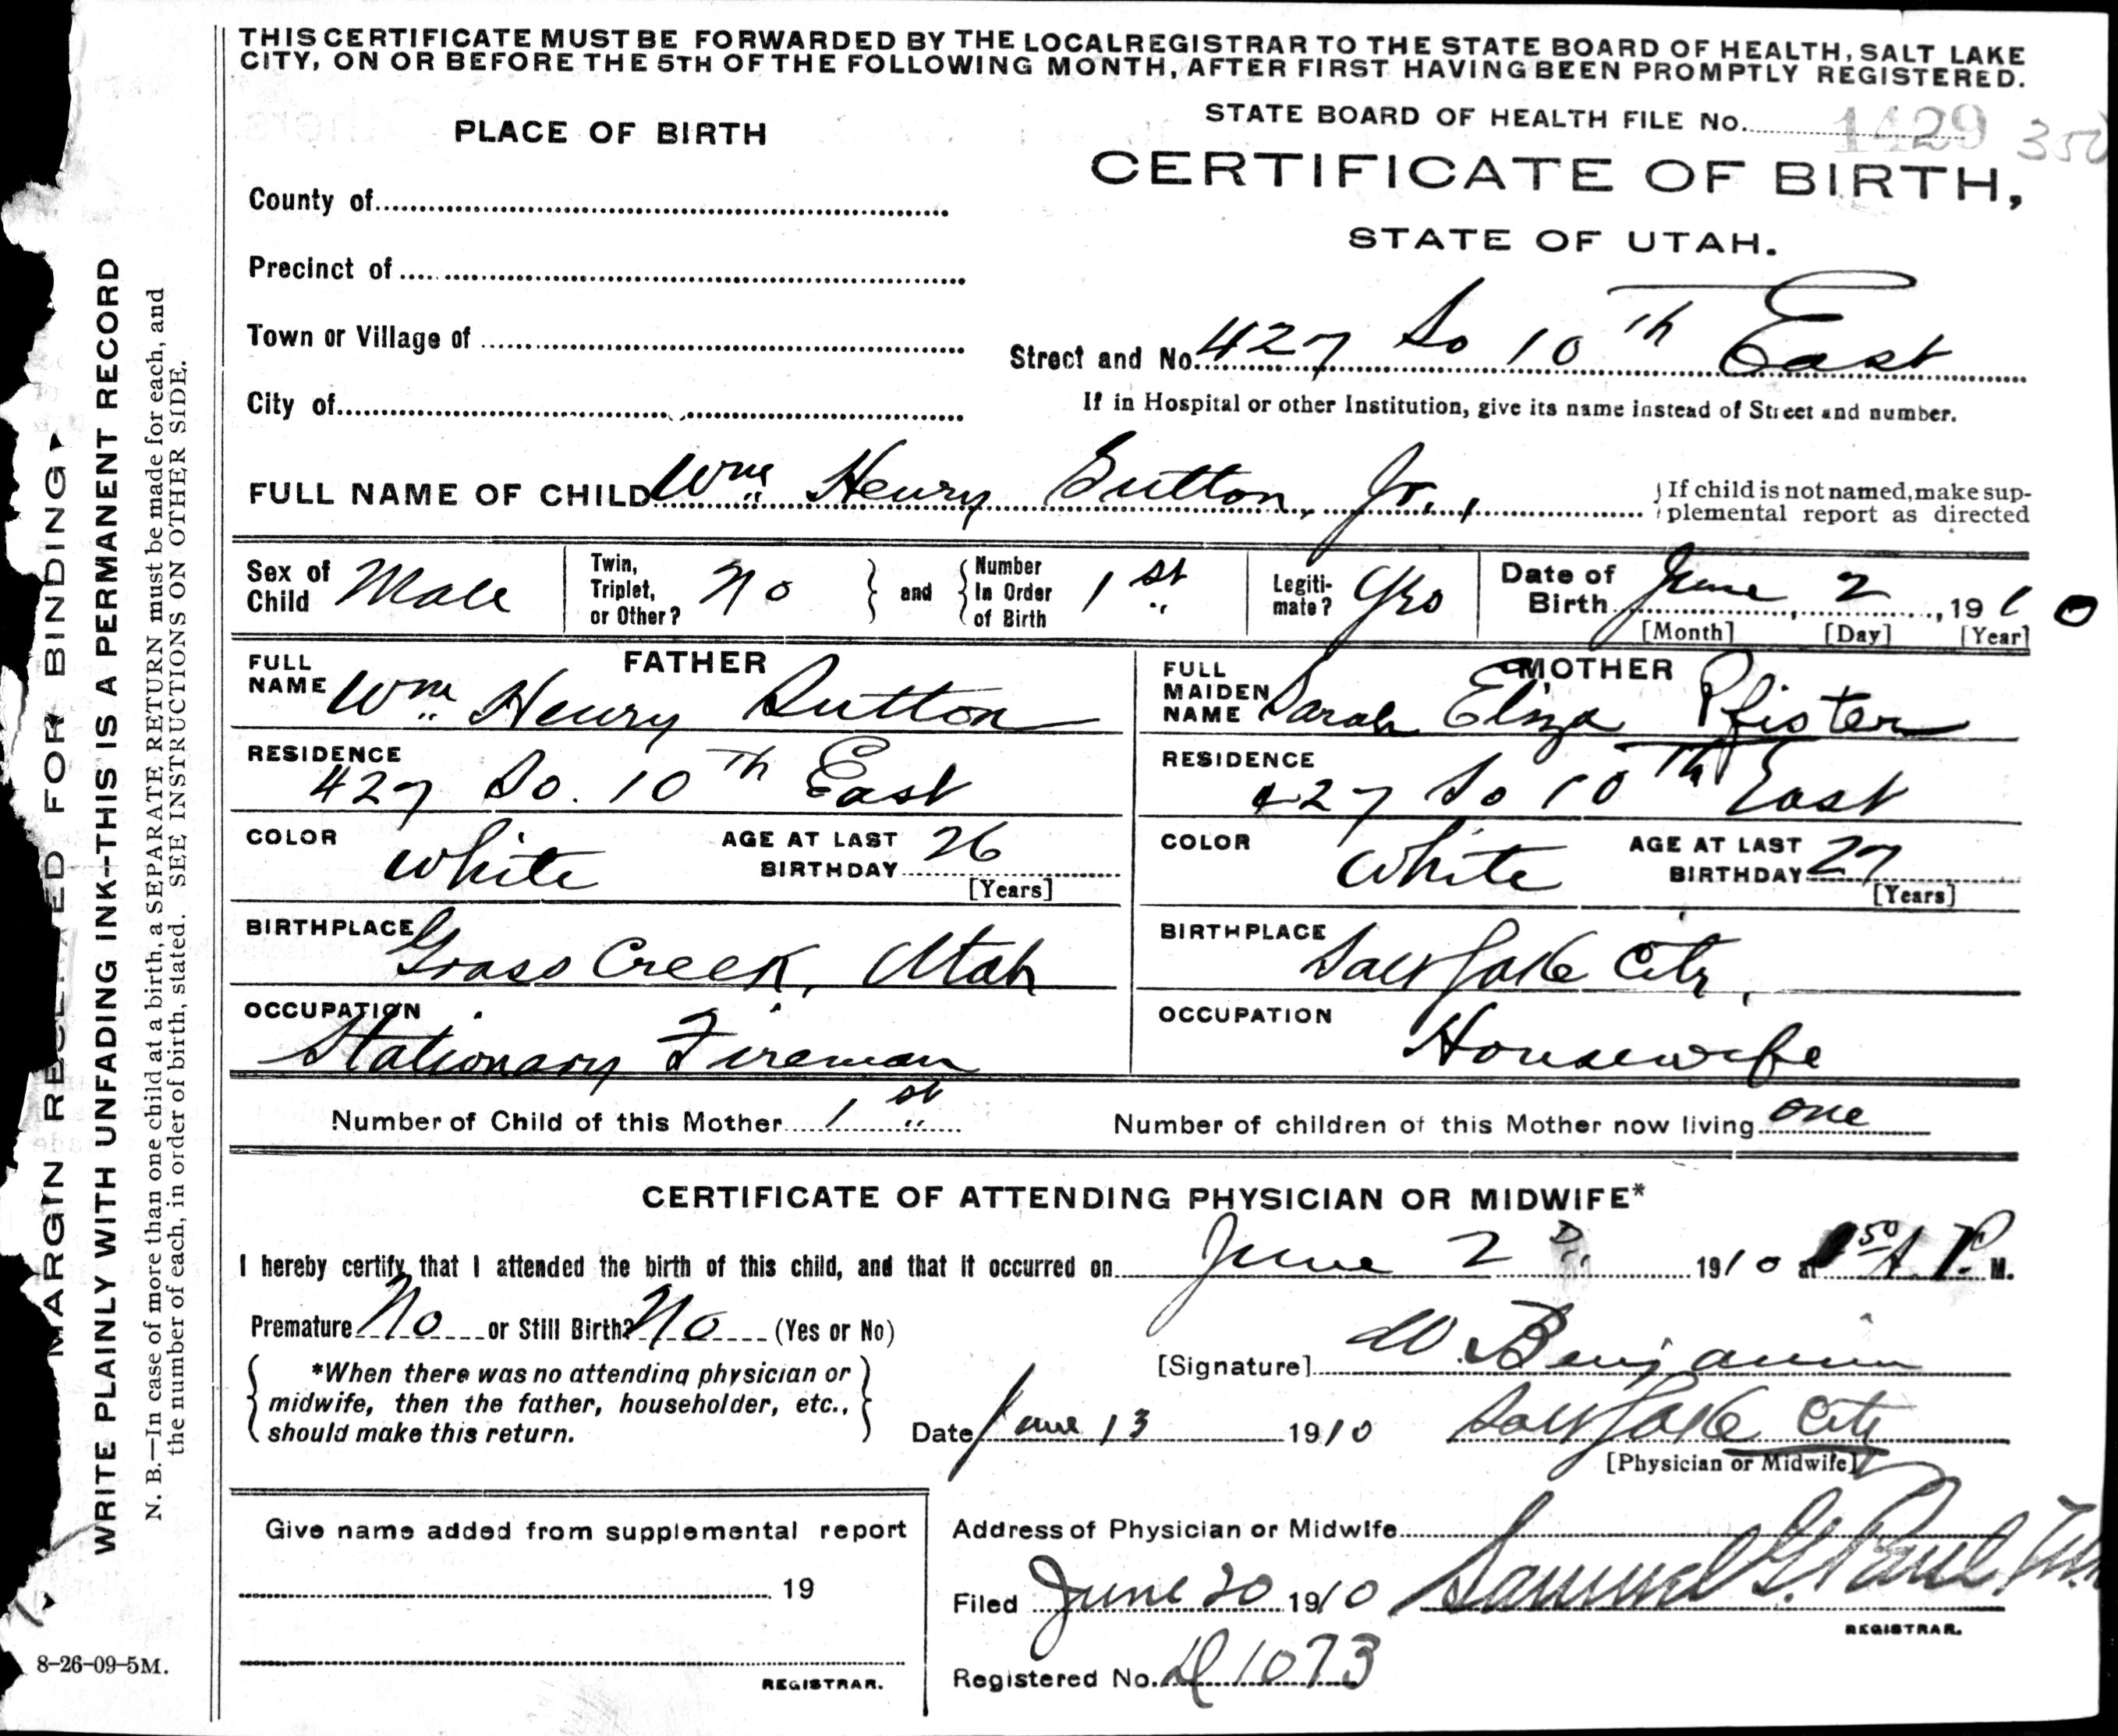 THIS CERTIFICATE MUST BE FORWARDED BY THE LOCAL REGISTRAR TO THE STATE BOARD OF HEALTH, SALT LAKE
CITY, ON OR BEFORE THE 5TH OF THE FOLLOWING MONTH, AFTER FIRST HAVING BEEN PROMPTLY REGISTERED.
STATE BOARD OF HEALTH FILE No. 1429 350
PLACE OF BIRTH
CERTIFICATE OF BIRTH,
STATE OF UTAH.
County of
Precinct of
Town or Village of
Street and No. 427 So 10th East
City of
If in Hospital or other Institution, give its name instead of Street and number.
FULL NAME OF CHILD Wm Henry Sutton, Jr.,
If child is not named, make sup-
plemental report as directed
Sex of Child Male
Twin, Triplet, or Other? No
and
Number In Order of Birth 1st
Legiti-mate? Yes
Date of Birth June 2, 1910
[Month] [Day] [Year]
FATHER
FULL NAME Wm Henry Sutton
RESIDENCE
427 So. 10th East
COLOR White
AGE AT LAST BIRTHDAY 26
[Years]
BIRTHPLACE Grass Creek, Utah
OCCUPATION
Stationary Fireman
MOTHER
FULL MAIDEN NAME Sarah Eliza Pfister
RESIDENCE
427 So 10th East
COLOR White
AGE AT LAST BIRTHDAY 27
[Years]
BIRTHPLACE Salt Lake City,
OCCUPATION
Housewife
Number of Child of this Mother 1st
Number of children of this Mother now living one
CERTIFICATE OF ATTENDING PHYSICIAN OR MIDWIFE*
I hereby certify that I attended the birth of this child, and that it occurred on June 2 1910 at 50 P. M.
Premature No or Still Birth? No (Yes or No)
[Signature] W. Benjamin
*When there was no attending physician or
midwife, then the father, householder, etc.,
should make this return.
Date June 13 1910
Salt Lake City
[Physician or Midwife]
Give name added from supplemental report
19
REGISTRAR.
Address of Physician or Midwife
Filed June 20 1910 Samuel G. Paul
REGISTRAR.
Registered No. D1073
MARGIN RESERVED FOR BINDING
WRITE PLAINLY WITH UNFADING INK--THIS IS A PERMANENT RECORD
N. B.—In case of more than one child at a birth, a SEPARATE RETURN must be made for each, and
the number of each, in order of birth, stated. SEE INSTRUCTIONS ON OTHER SIDE.
8-26-09-5M.